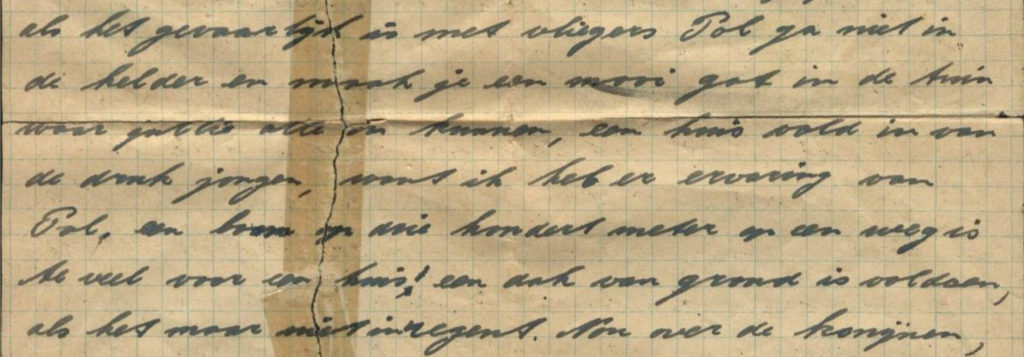 als het gevaarlijk is met vliegers Pol ga niet in
de kelder en maak je een mooi gat in de tuin
waar jullie alle in kunnen, een huis vald in van
de druk jongen, want ik heb er ervaring van
Pol, een bom op drie hondert meter op een weg is
te veel voor een huis! een dak van grond is voldoen,
als het maar niet inregent. Nou over de konijnen,